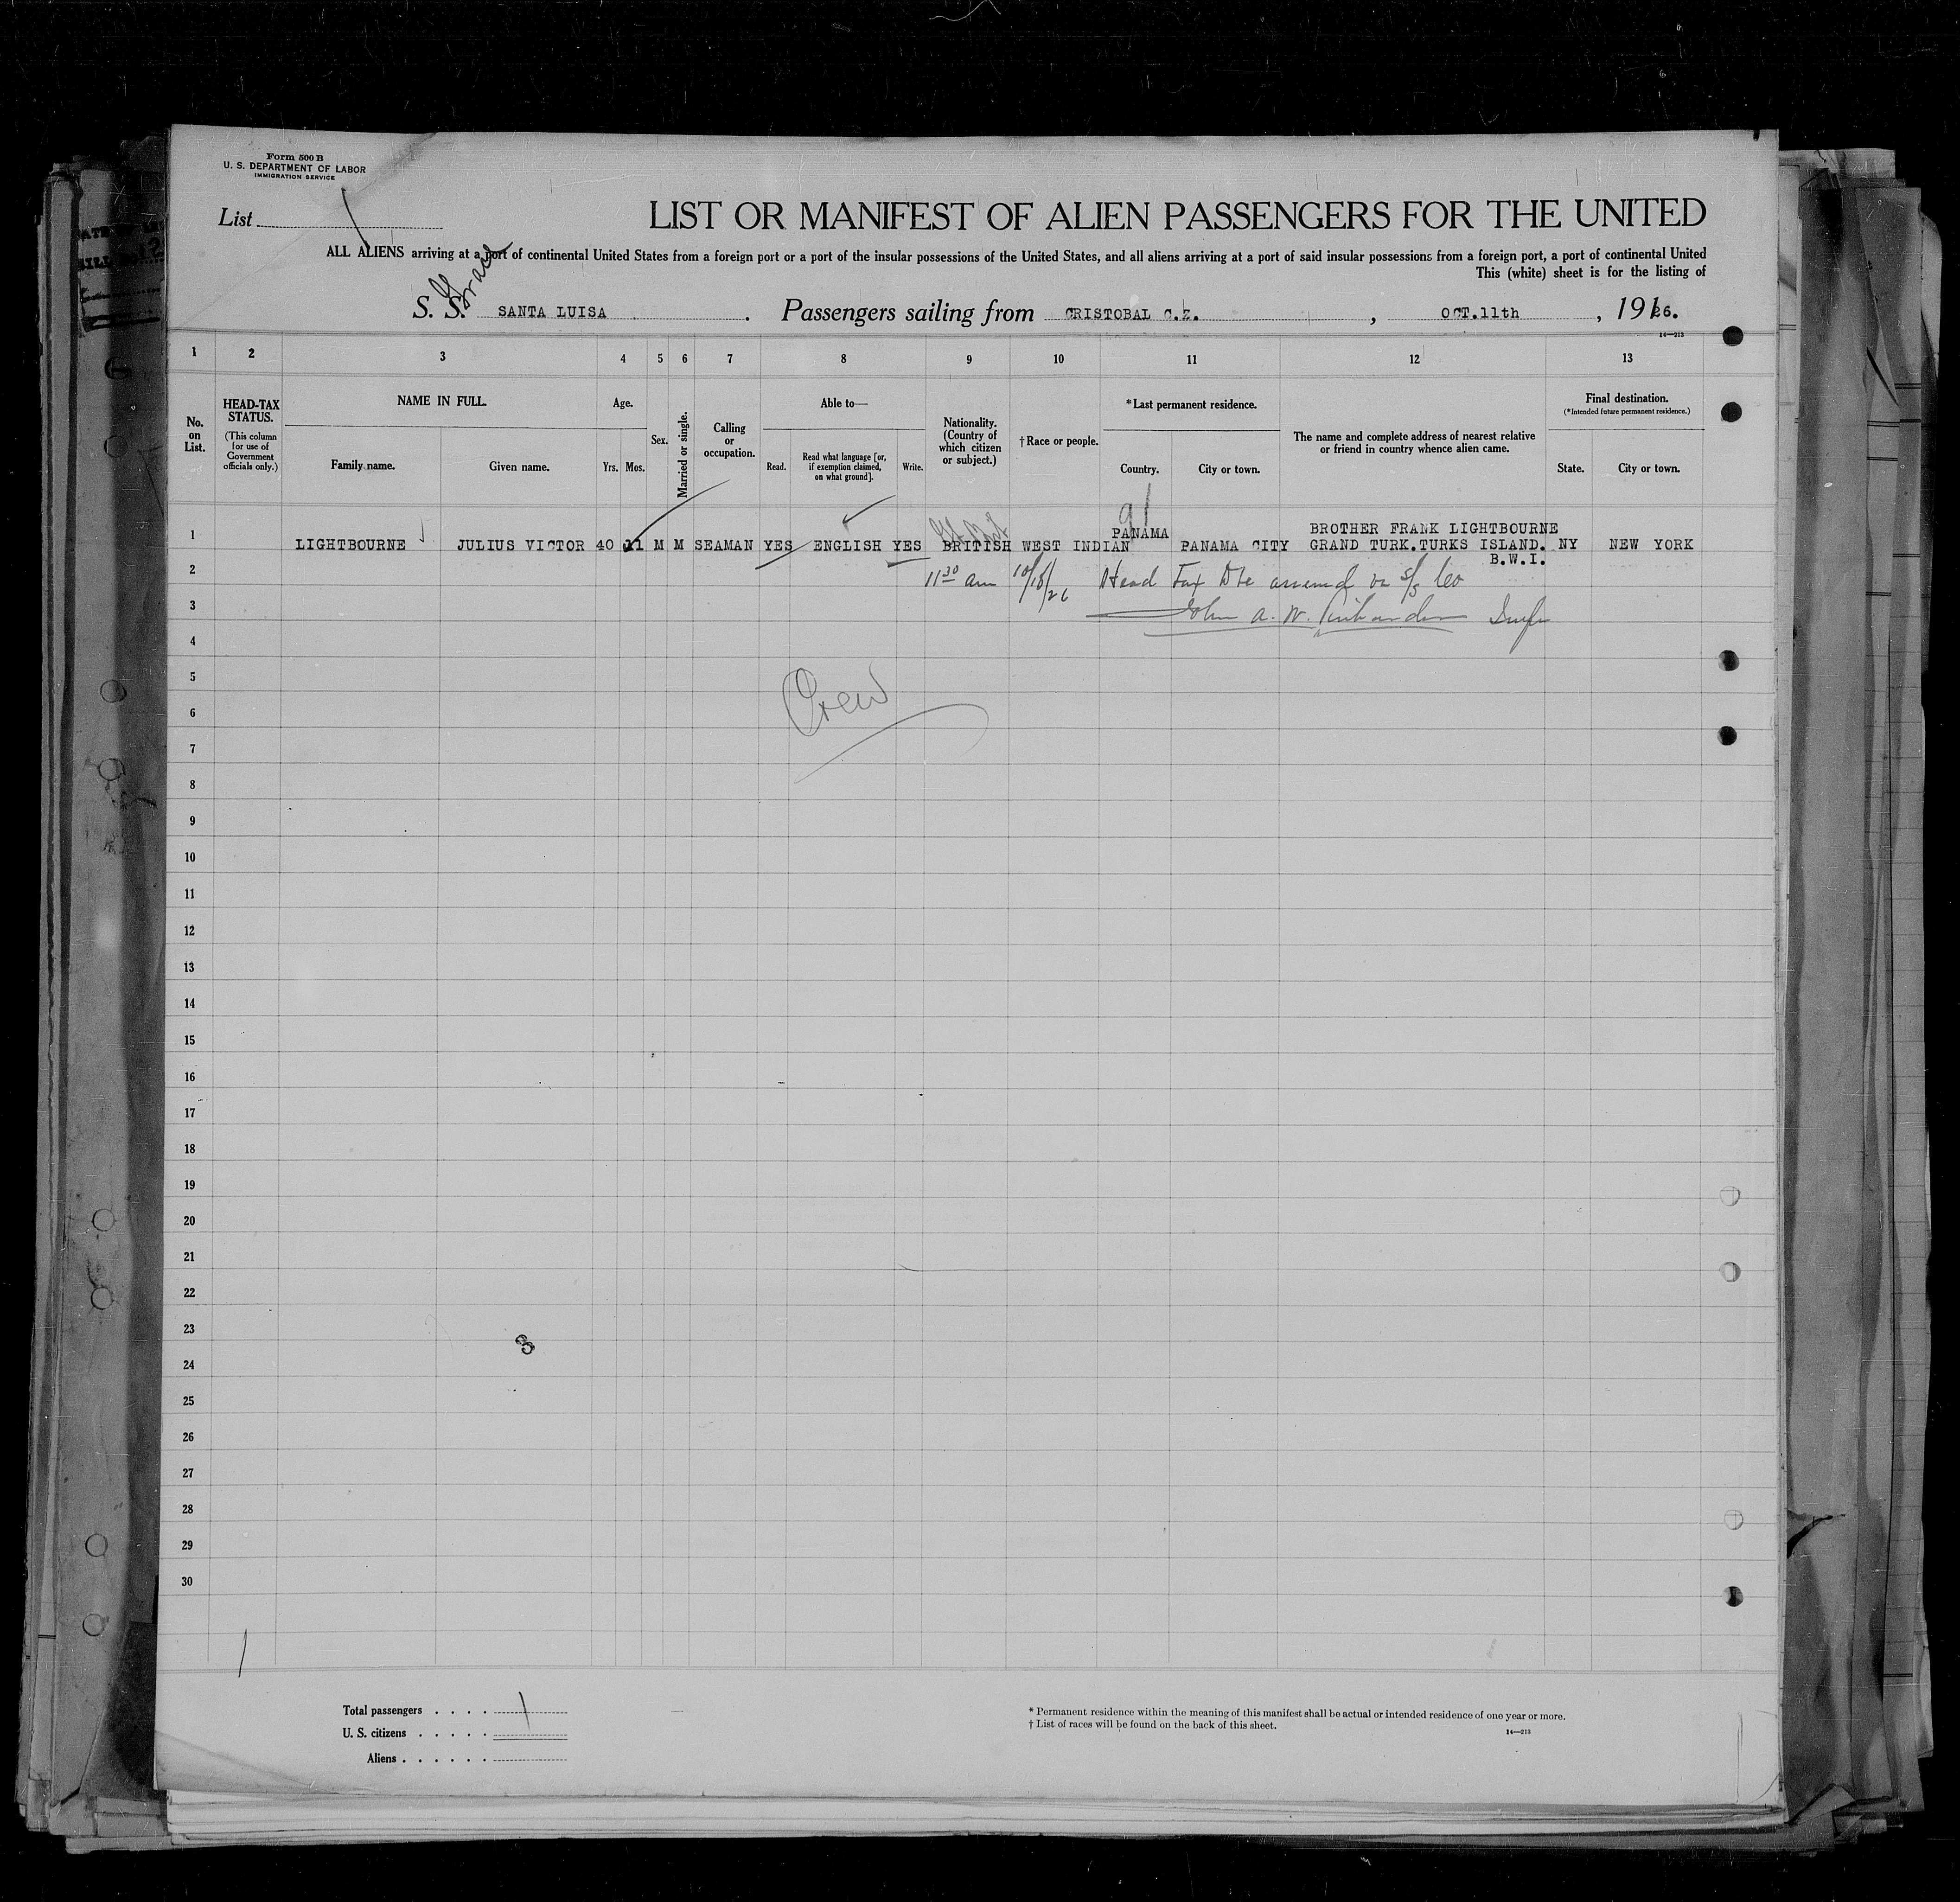 Form 500 B
U. S. DEPARTMENT OF LABOR
IMMIGRATION SERVICE
List
LIST OR MANIFEST OF ALIEN PASSENGERS FOR THE UNITED
ALL ALIENS arriving at a port of continental United States from a foreign port or a port of the insular possessions of the United States, and all aliens arriving at a port of said insular possessions from a foreign port, a port of continental United
This (white) sheet is for the listing of
Grace
S. S. SANTA LUISA . Passengers sailing from CRISTOBAL C.Z. , OCT.11th , 1926.
14—213
1 2 3 4 5 6 7 8 9 10 11 12 13
No. on List.
HEAD-TAX STATUS.
(This column for use of Government officials only.)
NAME IN FULL.
Family name. Given name.
Age.
Yrs. Mos.
Sex.
Married or single.
Calling or occupation.
Able to—
Read. Read what language [or, if exemption claimed, on what ground]. Write.
Nationality. (Country of which citizen or subject.)
†Race or people.
*Last permanent residence.
Country. City or town.
The name and complete address of nearest relative or friend in country whence alien came.
Final destination.
(*Intended future permanent residence.)
State. City or town.
91
1 LIGHTBOURNE JULIUS VICTOR 40 11 M M SEAMAN YES ENGLISH YES BRITISH WEST INDIAN PANAMA PANAMA CITY BROTHER FRANK LIGHTBOURNE GRAND TURK.TURKS ISLAND. B.W.I. NY NEW YORK
2 11 30 am 10/18/26 Head Tax
3 John A. W.
4
5
Crew
6
7
8
9
10
11
12
13
14
15
16
17
18
19
20
21
22
23
3
24
25
26
27
28
29
30
Total passengers . . . . 1
U. S. citizens . . . . .
Aliens . . . . . .
* Permanent residence within the meaning of this manifest shall be actual or intended residence of one year or more.
† List of races will be found on the back of this sheet.
14—213